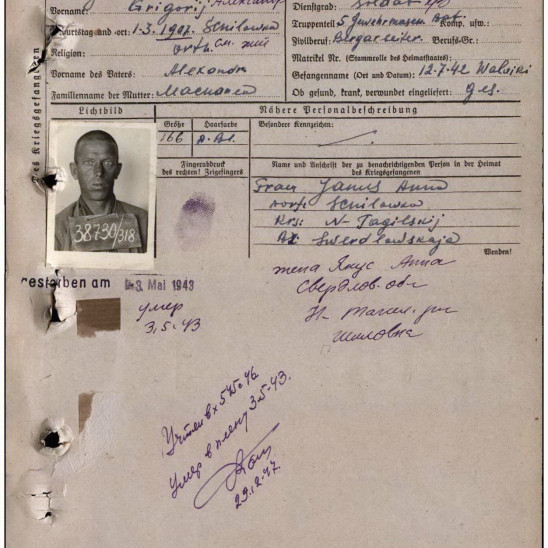 Vorname: Grigorij Александр
Dienstgrad: Soldat
Geburtstag und -ort: 1.3.1907. Schilowka
Truppenteil: 5 Gewehrmasch. Bat. Komp. usw.:
Religion: Orth.
Zivilberuf: Bergarbeiter. Berufs-Gr.:
Vorname des Vaters: Alexandr
Matrikel Nr. (Stammrolle des Heimatstaates):
Familienname der Mutter:
Gefangennahme (Ort und Datum): 12.7.42
Ob gefund, krank, verwundet eingeliefert: ges.
des Kriegsgefangenen
Lichtbild
Nähere Personalbeschreibung
Größe
Haarfarbe
Besondere Kennzeichen:
166
d. Bl.
38730/318
Fingerabdruck
des rechten! Zeigefingers
Name und Anschrift der zu benachrichtigenden Person in der Heimat
des Kriegsgefangenen
Frau Janus Anna
Dorf: Schilowka
Krs: N-Tagilskij
Swerdlowskaja
Wenden!
gestorben am -3. Mai 1943
умер
3.5.43
жена Янус Анна
Свердлов. обл
Н. Тагил. р-н
Шиловка
Учтен вх 545-46
Умер в плену 3-5-43.
29.12.47.